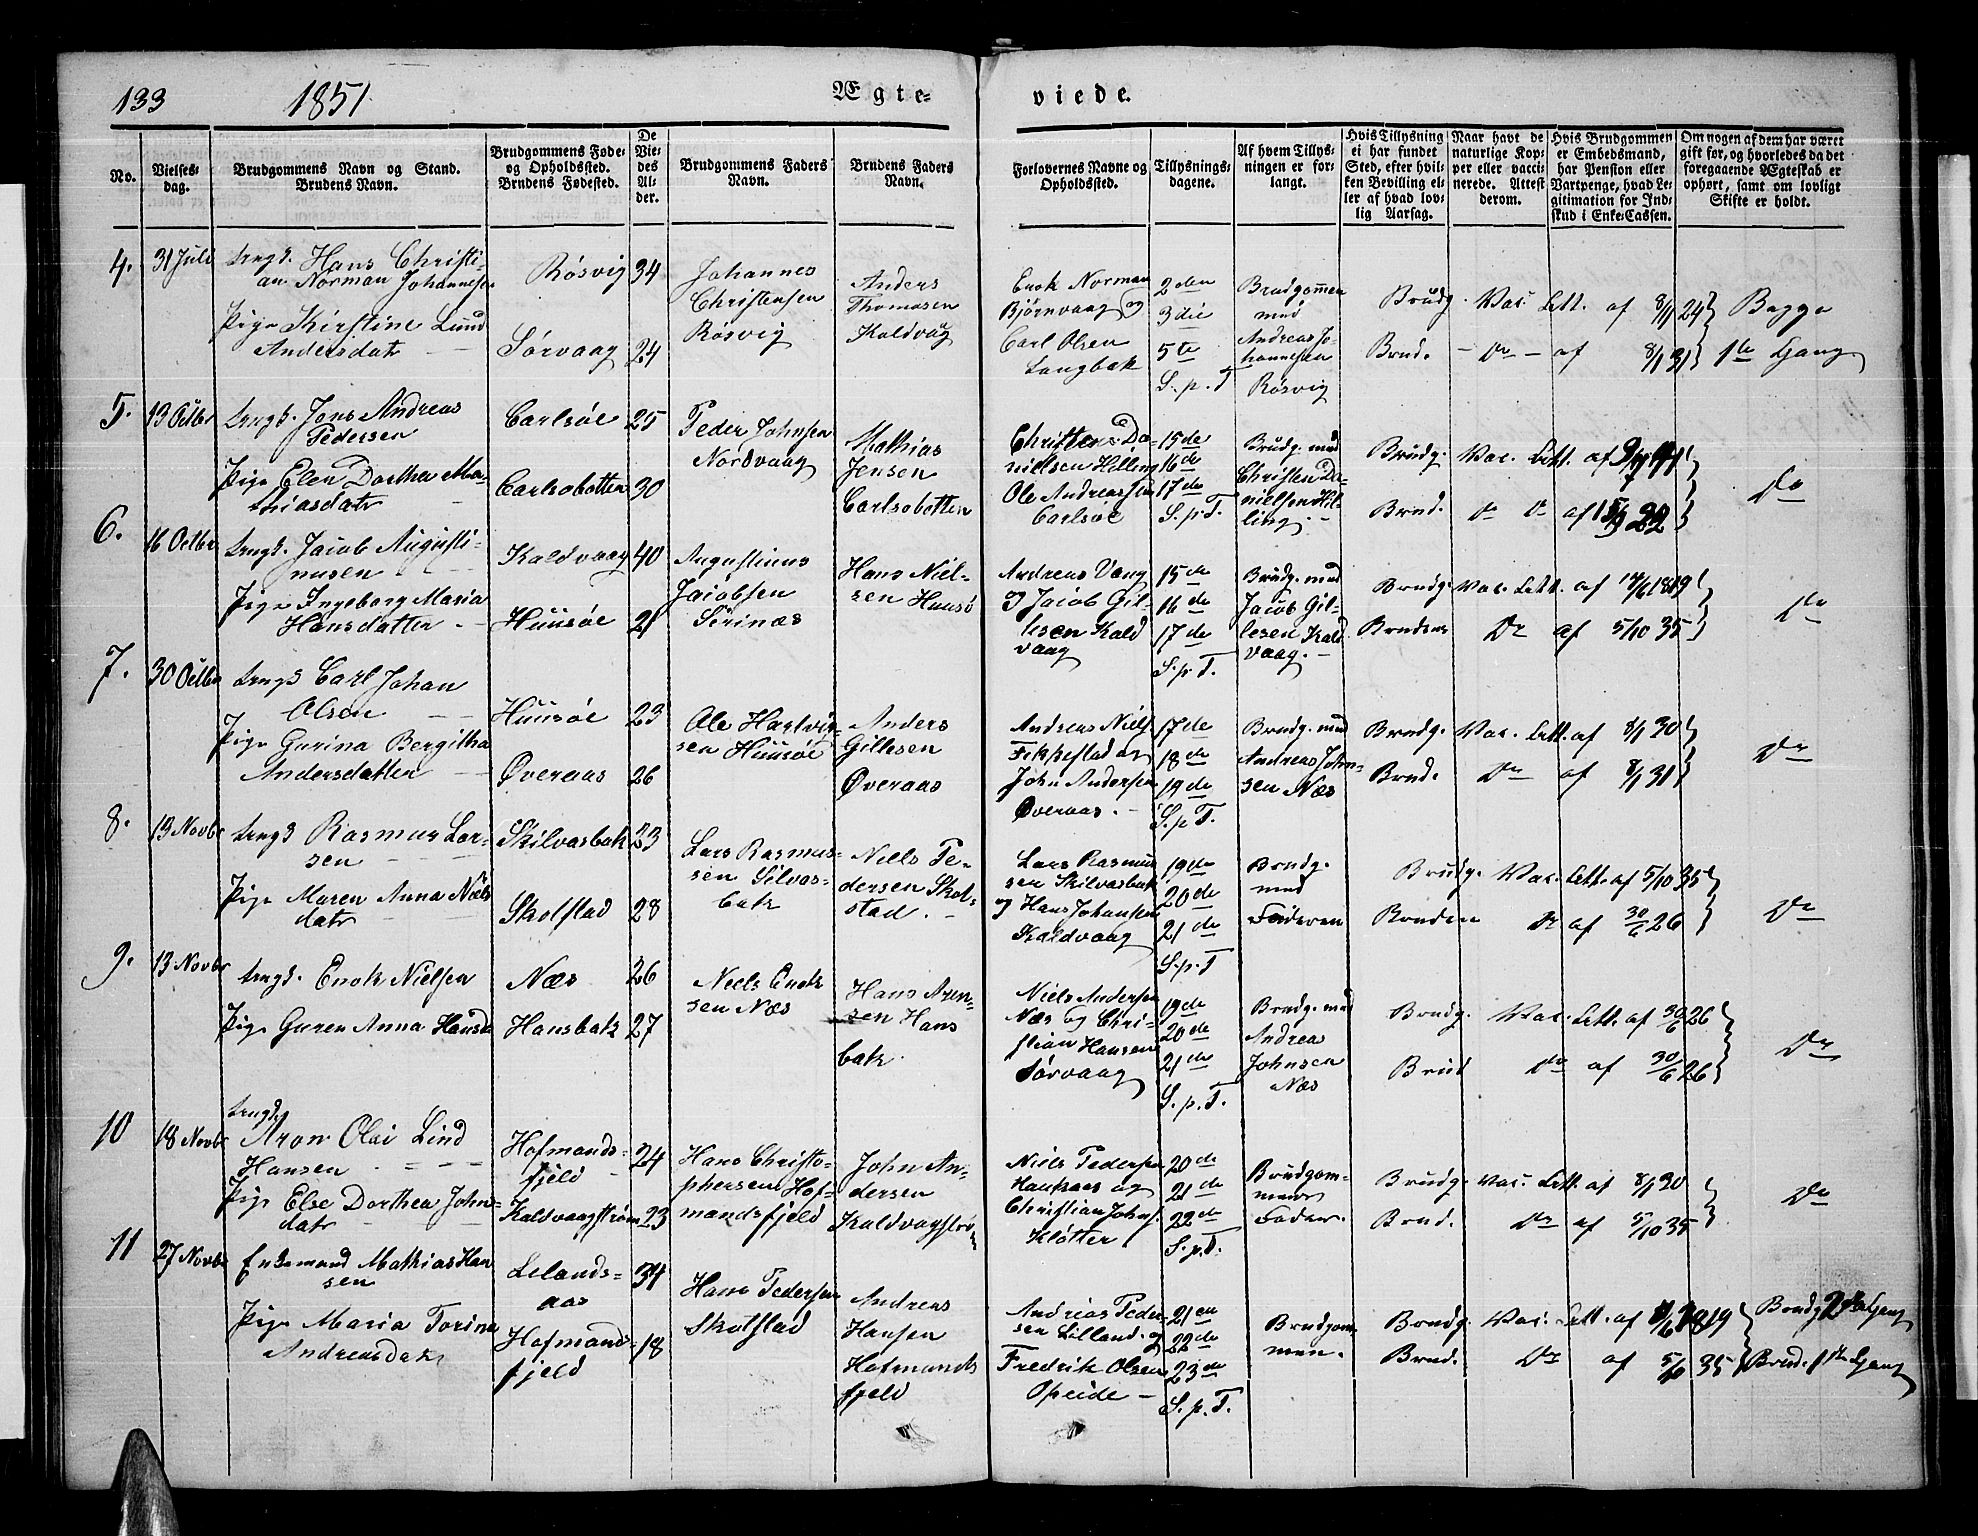 133
1851
Ægte-
viede.
No.
Vielses-
dag.
Brudgommens Navn og Stand.
Brudens Navn.
Brudgommens Føde-
og Opholdssted.
Brudens Fødested.
De
Vie-
des
Al-
der.
Brudgommens Faders
Navn.
Brudens Faders
Navn.
Forlovernes Navne og
Opholdssted.
Tillysnings-
dagene.
Af hvem Tillys-
ningen er for-
langt.
Hvis Tillysning
ei har fundet
Sted, efter hvil-
ken Bevilling el-
ler af hvad lov-
lig Aarsag.
Naar havt de
naturlige Kop-
per eller vacci-
nerede. Attest
derom.
Hvis Brudgommen
er Embedsmand,
har Pension eller
Vartpenge, hvad Le-
gitimation for Ind-
skud i Enke-Cassen.
Om nogen af dem har været
gift før, og hvorledes da det
foregaaende Ægteskab er
ophørt, samt om lovligt
Skifte er holdt.
4.
31 Juli
Hans Christi-
an Norman Johannesen
Pige Kirstine Lund
Andersdatr
Røsvig
Sørvaag
34
24
Johannes
Christensen
Røsvig
Anders
Thomasen
Kaldvag
Enok Norman
Bjørnvaag og
Carl Olsen
Langbak
2den
3die
5te
S. p. T
Brudgommen
med
Andreas Jo-
hannesen
Røsvig
Brudg. Vac. Att. af 8/11 24
Brud. - Do - af 8/1 31
Begge
1ste Gang
5.
13 Octbr
Jens Andreas
Pedersen
Pige Elen Dorthea Ma-
thiasdatr
Carlsøe
Carlsobotten
25
30
Peder Johnsen
Nordvaag
Mathias
Jensen
Carlsobotten
Christten Da-
nielsen Helling
Ole Andreassen
Carlsøe
15de
16de
17de
S. p. T.
Brudg. med
Christen Da-
nielsen Hel-
ling.
Brudg. Vac. Att. af
Brud. Do Do af
Do
6.
16 Octbr
Jacob Augusti-
nusen
Pige Ingeborg Maria
Hansdatter
Kaldvaag
Huusøe
40
21
Augustinus
Jacobsen
Serinæs
Hans Niel-
sen Huusø
Andreas Vaag
og Jacob Gil-
lesen Kald
vaag
15de
16de
17de
S. p. T.
Brudg. med
Jacob Gil-
lesen Kald
vaag.
Brudg. Vac. Att. af 1819
Brudens Do af 5/10 35
Do
7.
30 Octbr
Carl Johan
Olsen
Pige Gurina Bergitha
Andersdatter
Huusøe
Øveraas
23
26
Ole Hartvig-
sen Huusøe
Anders
Gillesen
Øveraas
Andreas Niels
og
John Andersen
Øveraas.
17de
18de
19de
S. p. T.
Brudg. med
Andreas John-
sen Næs
Brudg. Vac. Att. af 8/1 30
Brud. Do af 8/1 31
Do
8.
13 Novbr
Rasmus Lar-
sen
Pige Maren Anna Niels
datr
Skilvasbak
Skotstad
23
28
Lars Rasmus-
sen Silvas-
bak
Niels Pe-
dersen Skot-
stad.
Lars Rasmus
sen Skilvasbak
og Hans Johansen
Kaldvaag
19de
20de
21de
S. p. T
Brudg.
med
Faderen
Brudg. Vac. Att. af 5/10 35
Bruden Do af 30/6 26
Do
9.
13 Novbr
Enok Nielsen
Pige Guren Anna Hansd
Næs
Hansbak
26
27
Niels Enok
sen Næs
Hans Aren-
sen Hans
bak.
Niels Andersen
Næs og Chri-
stian Hansen
Sørvaag
19de
20de
21de
S. p. T.
Brudg. med
Andreas
Johnsen
Næs
Brudg. Vac. Att. af 30/6 26
Brud Do af 30/6 26
Do
10
18 Novbr
Aron Olai Lind
Hansen
Pige Else Dorthea John-
datr
Hofmands-
fjeld
Kaldvaagstrøm
24
23
Hans Christo-
phersen Hof-
mandsfjeld
John An-
dersen
Kaldvagstrøm
Niels Pedersen
Haukaas og
Christian Johns.
Kløtter
20de
21de
22de
S. p. T.
Brudgom-
mens
Fader.
Brudg. Vac. Att. af 8/1 20
Brud. Do af 5/10 35
Do
11
27 Novbr
Enkemand Mathias Han
sen
Pige Maria Torina
Andreasdatr
Lelands-
aas
Hofmands-
fjeld
34
18
Hans Pedersen
Skotstad
Andreas
Hansen
Hofmands
fjeld
Andreas Peder
sen Lilland og
Fredrik Olsen
Opeide
21de
22de
23de
S. p. T.
Brudgom
men.
Brudg. Vac. Att. af 1819
Brud. Do af 5/10 35
Brudg 2den Gang
Brud. 1ste Gang